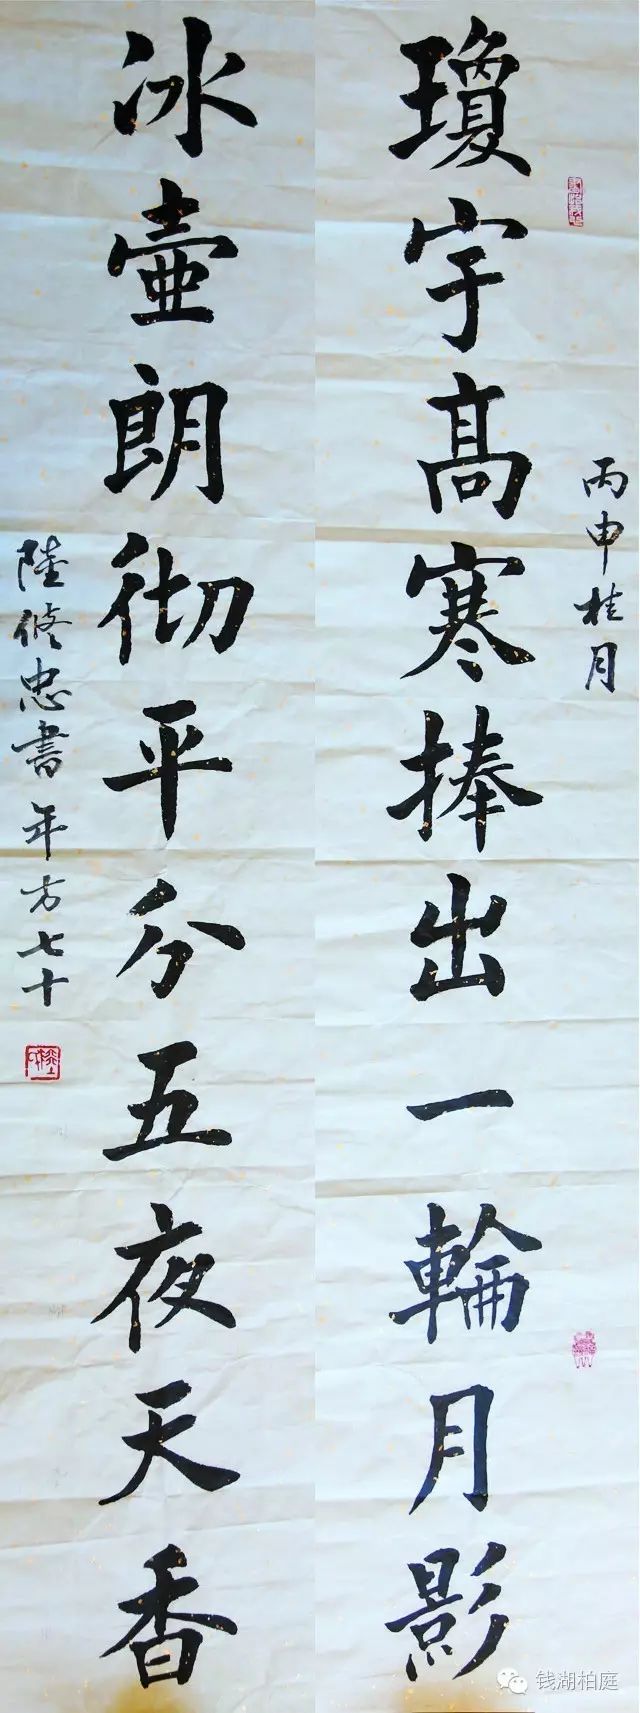 丙申桂月
瓊宇髙寒捧出一輪月影
冰壺朗彻平分五夜天香
陸修忠書年方七十
钱湖柏庭